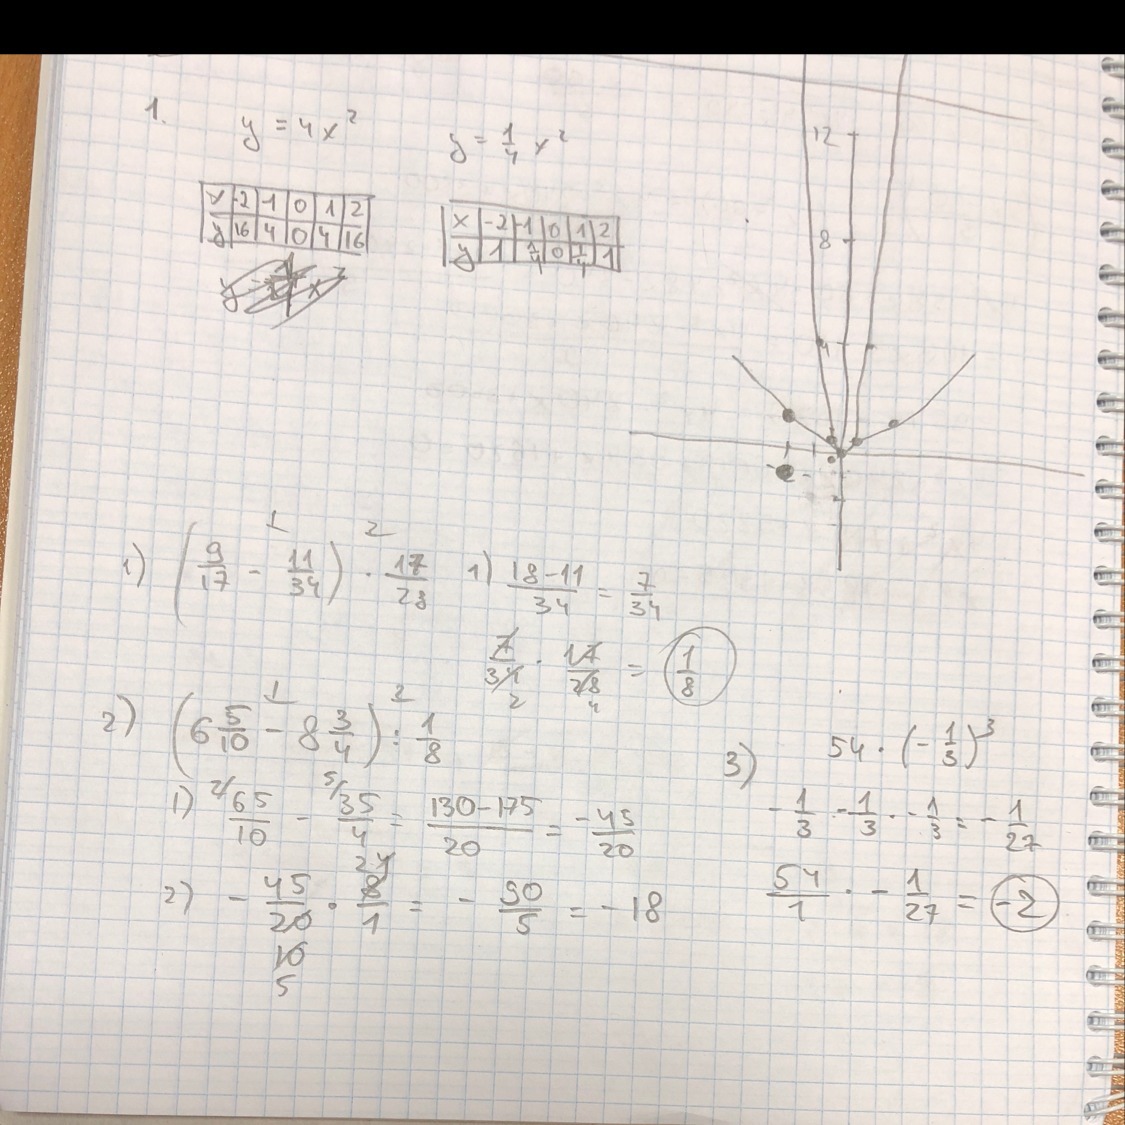 1.
y = 4x²
y = 1/4 x²
x -2 -1 0 1 2
y 16 4 0 4 16
x -2 -1 0 1 2
y 1 1/4 0 1/4 1
12
8
4
1) (9/17 - 11/34) · 17/28
1 2
1) 18-11/34 = 7/34
7/34 · 17/28 = 1/8
2 4
2) (6 5/10 - 8 3/4) : 1/8
1 2
1) 2/ 65/10 - 5/ 35/4 = 130-175/20 = -45/20
2) - 45/20 · 8/1 = - 90/5 = -18
2 4
10
5
3) 54 · (-1/3)³
-1/3 · -1/3 · -1/3 = -1/27
54/1 · -1/27 = -2